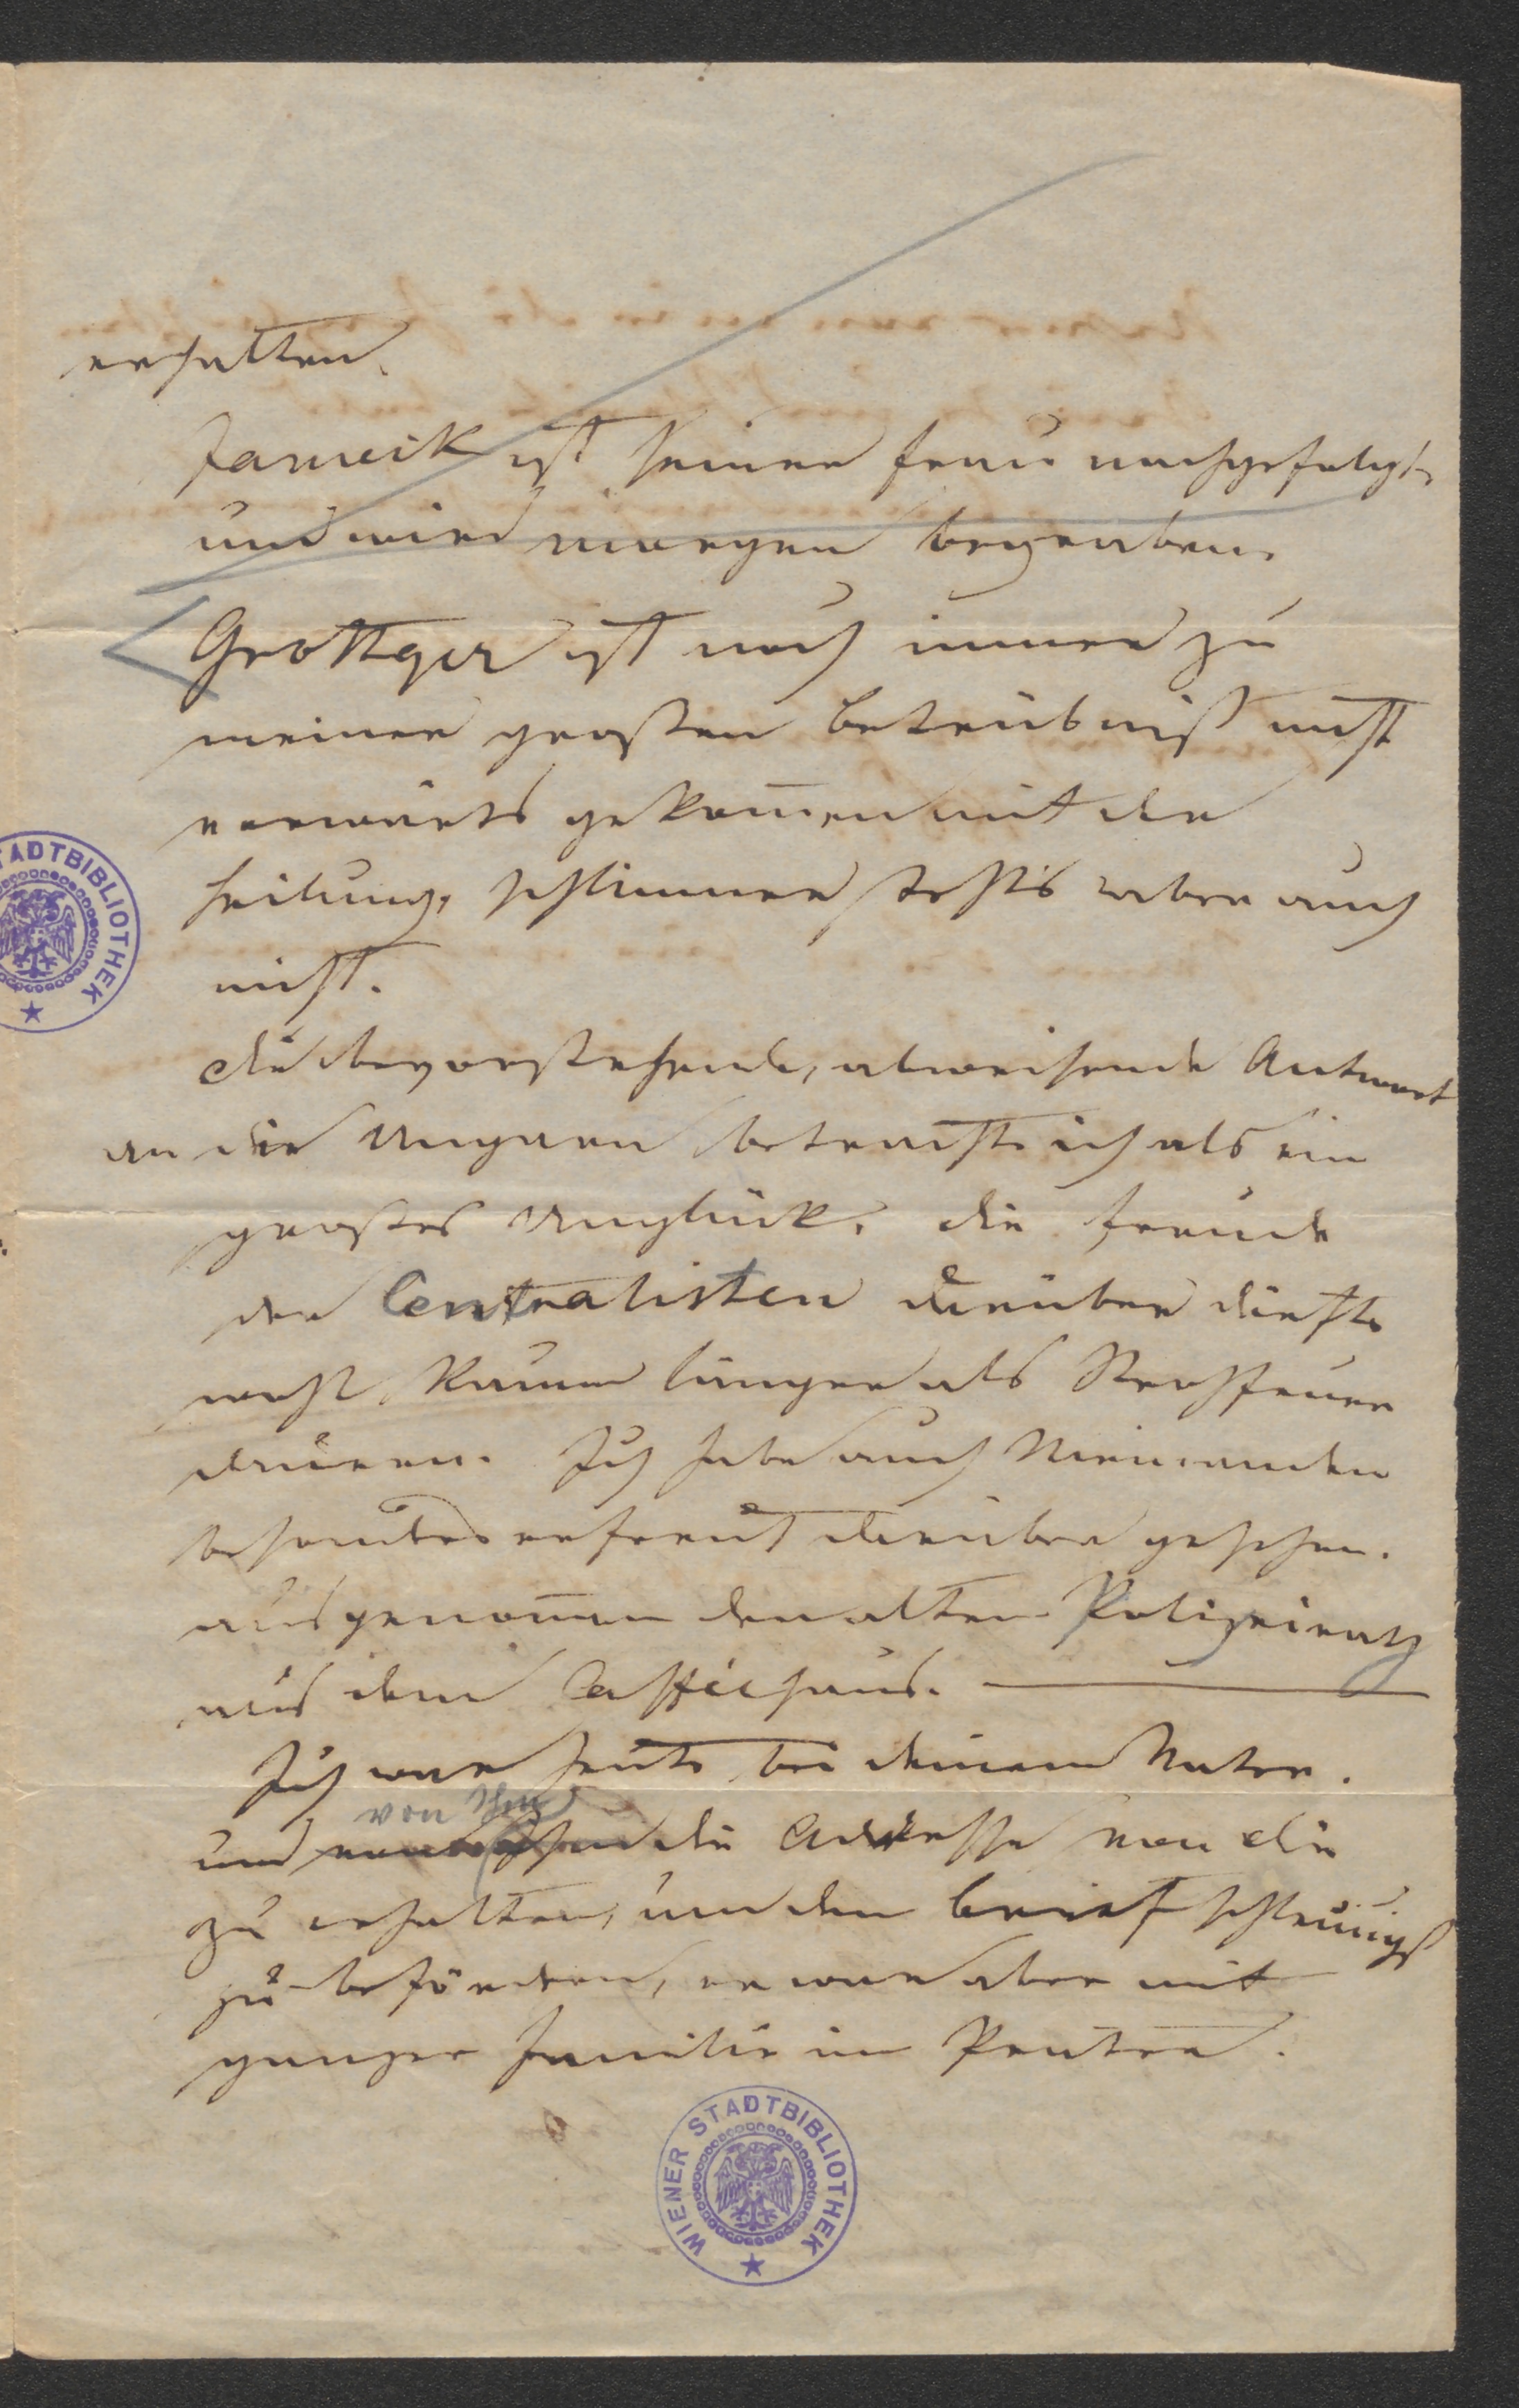 erhalten.
Jarweik ist seiner Frau nachgefolgt,
und wird morgen begraben.
Grottger ist noch immer zu
meiner großen Betrübniß nicht
vorwärts gekom̄en mit der
Heilung, schlimmer steht's aber auch
nicht.
Die bevorstehende, abweisende Antwort
an die Ungarn betrachte ich als ein
großes Unglück. Die Freude
der Centralisten darüber dürfte
wohl kaum länger als Strohfeuer
dauern. Ich habe auch Niemanden
besonders erfreut darüber gesehen.
ausgenom̄en den alten Polizeirath
aus dem Caffeehaus.
Ich war heute bei deinem Vater.
von ihm
und die Addresse von dir
zu erhalten, um den Brief schleunigst
zu befördern, er war aber mit
ganzer Familie im Prater.
STADTBIBLIOTHEK
WIENER STADTBIBLIOTHEK